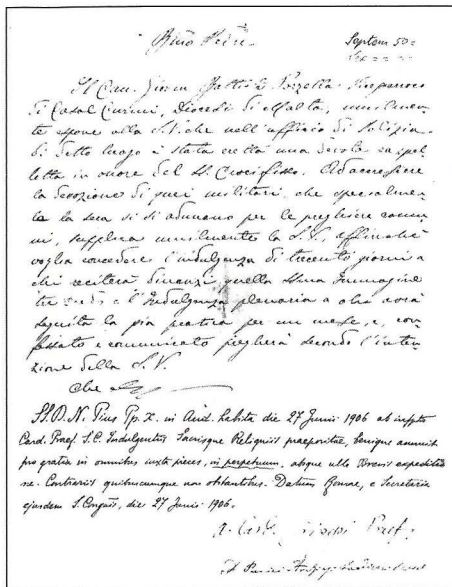 Bmo Padre.
Septem 50=
Il Can. Giovan Battista Pozzella Viceparroco
di Casal Curmi, Diocesi di Malta, umilmen
te espone alla S. V. che nell'uffizio di Polizia
di detto luogo è stata eretta una devota cappel
letta in onore del SS. Crocifisso. Ad accrescere
la devozione di quei militari, che specialmen
te la sera vi si adunano per le preghiere comu
ni, supplica umilmente la S. V. affinchè
voglia concedere l'indulgenza di trecento giorni a
chi reciterà dinanzi quella Ssma Immagine
tre Credo e l'indulgenza plenaria a chi avrà
seguita la pia pratica per un mese, e, con
fessato e comunicato pregherà secondo l'inten
zione della S. V.
Che
SS. D. N. Pius Pp. X. in Aud. habita die 27 Junii 1906 ab infpto
Card. Praef. S. C. Indulgentiis Sacrisque Reliquiis praepositae, benigne annuit
pro gratia in omnibus iuxta preces, in perpetuum, absque ulla Brevis expeditio
ne. Contrariis quibuscumque non obstantibus. Datum Romae, e Secretaria
ejusdem S. Congnis, die 27 Junii 1906.
A. Card. Tripepi Praef.